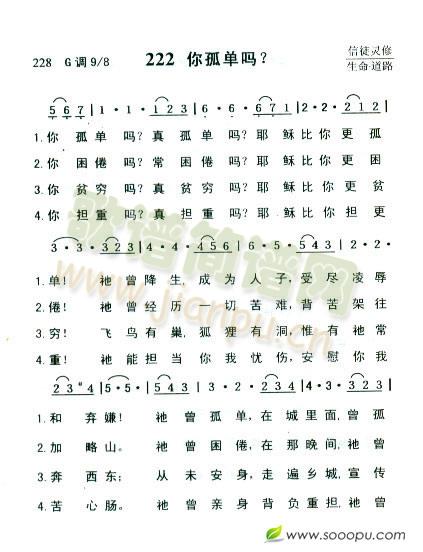 228 G 调 9/8 222 你孤单吗? 信徒灵修
生命·道路
5 6 7 | 1 · 1 · 1 2 3 | 6 · 5 · 5 6 7 | 1 · 1 · 1 2 3 | 2 · 2 · 2 1 2 |
1.你 孤单 吗? 真 孤单 吗? 耶 稣比你更 孤
2.你 困倦 吗? 常 困倦 吗? 耶 稣比你更 困
3.你 贫穷 吗? 真 贫穷 吗? 耶 稣比你更 贫
4.你 担重 吗? 真 担重 吗? 耶 稣比你担 更
3 · 3 · 3 2 3 | 4 · 4 · 4 3 4 | 6 · 5 · 5 4 3 | 1 · 2 ·
1.单! 祂曾降生, 成为人子, 受尽凌辱
2.倦! 祂曾经历一切苦难, 背苦架往
3.穷! 飞鸟有巢, 狐狸有洞, 惟有祂常
4.重! 祂能担当你我忧伤, 安慰你我
2 3 4 | 5 · 5 · 5 | 1 · 3 · 5 4 3 | 3 · 2 ·
1.和 弃嫌! 祂曾孤单, 在城里面, 曾孤
2.加 略山。 祂曾困倦, 在那晚间, 祂曾
3.奔 西东; 从未安身, 走遍乡城, 宣传
4.苦 心肠。 祂曾亲身背负重担, 祂曾
歌谱简谱网
www.jianpu.cn
www.sooopu.com